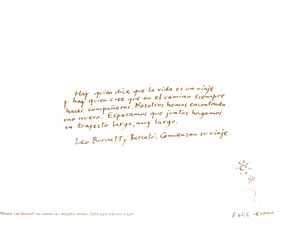 Hay quien dice que la vida es un viaje
y hay quien cree que en el camino siempre
haces compañeros. Nosotros hemos encontrado
uno nuevo. Esperamos que juntos hagamos
un trayecto largo, muy largo.
Leo Burnett y Barceló. Comienzan su viaje.
Feliz verano